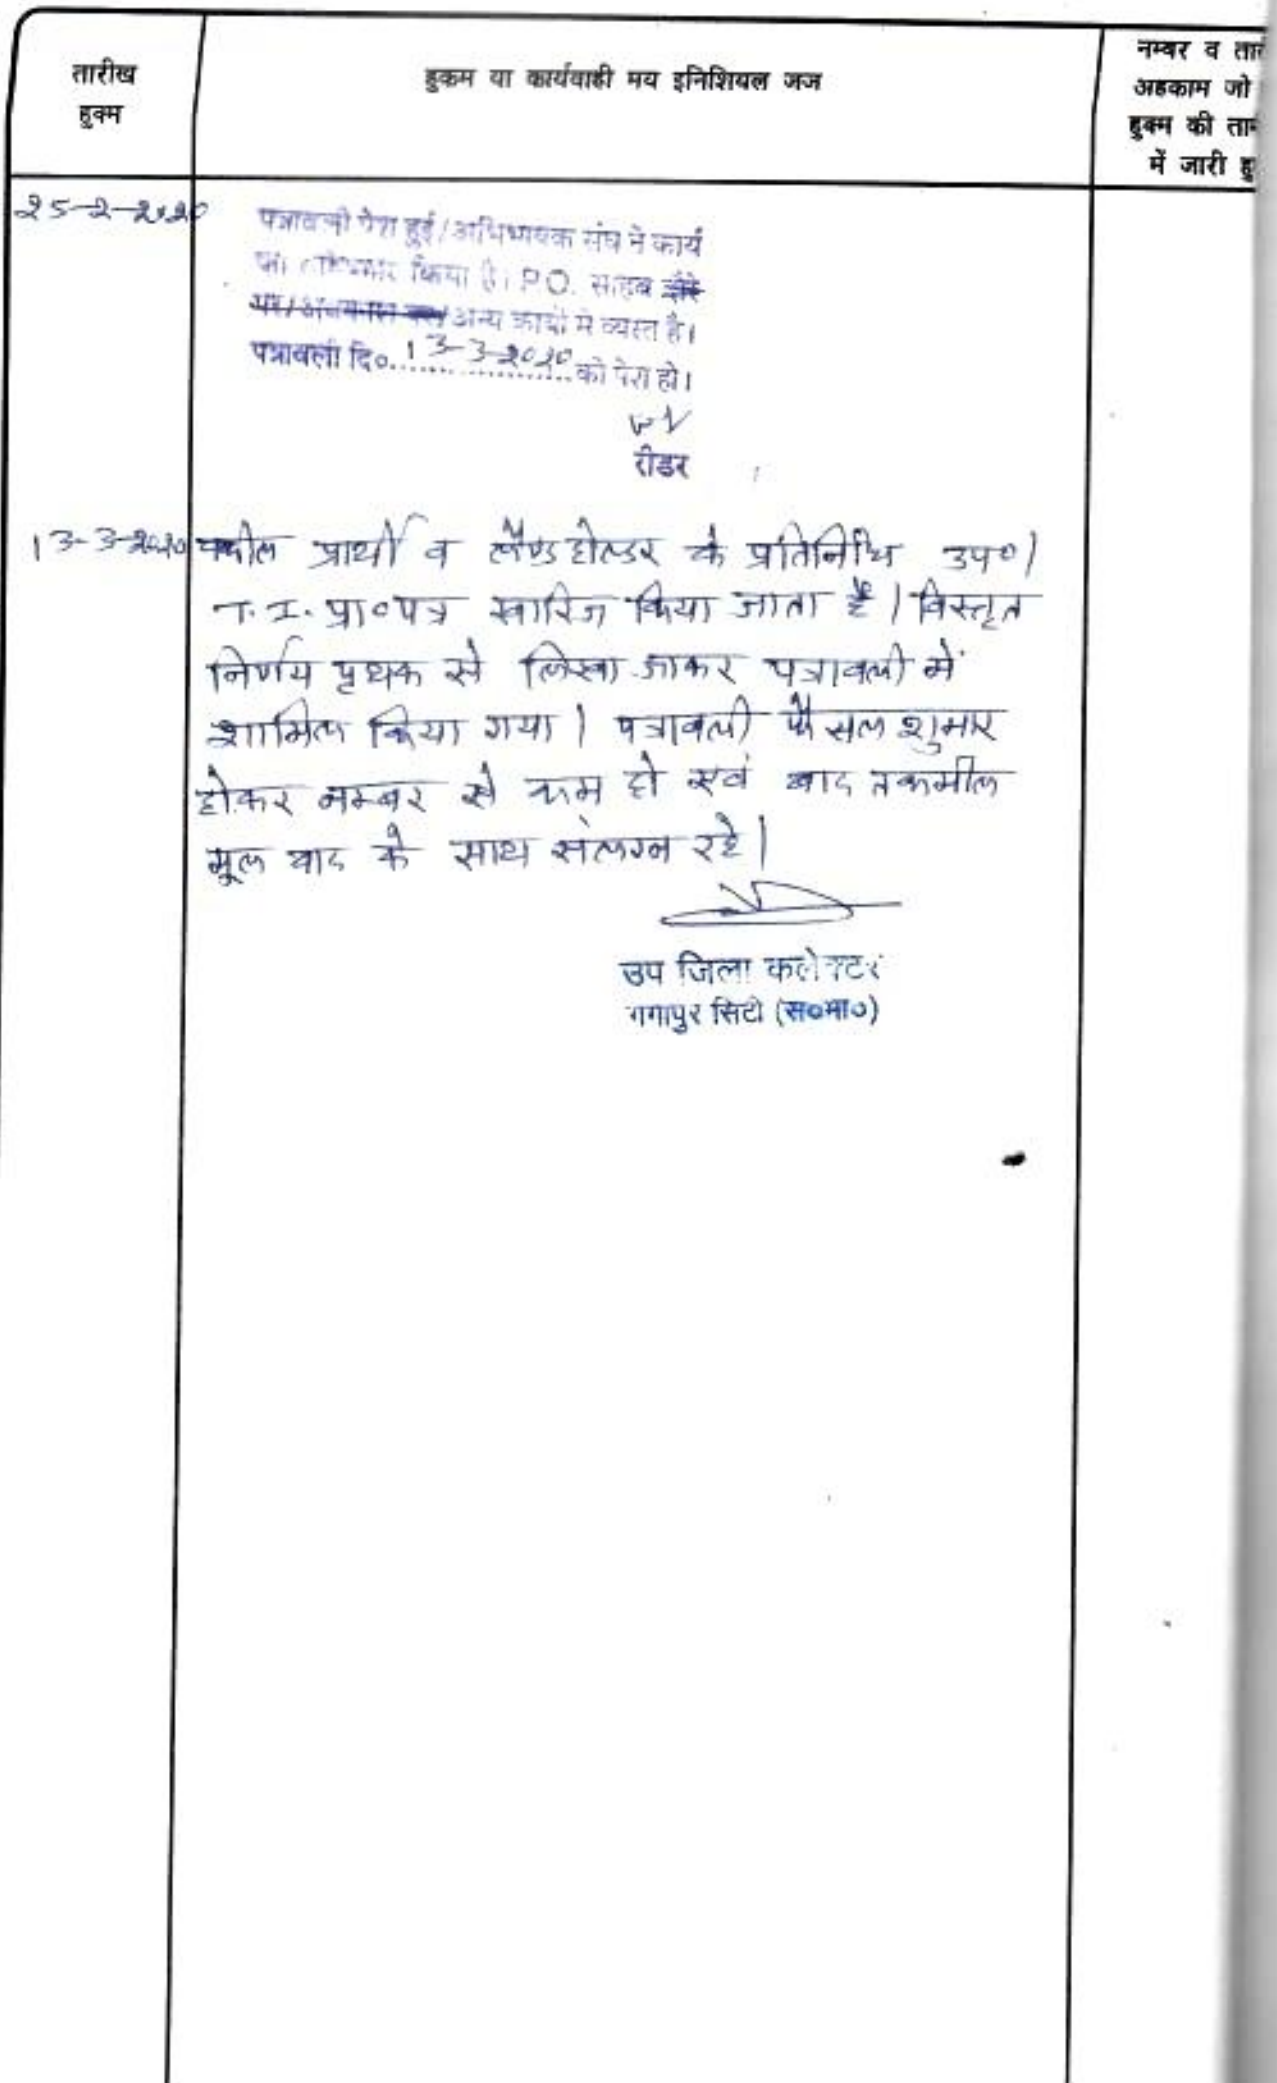 तारीख
हुक्म
हुकम या कार्यवाही मय इनिशियल जज
नम्बर व तारी
अहकाम जो
हुक्म की ताम
में जारी हु
25-2-2020
पत्रावली पेश हुई/अभिभाषक संघ ने कार्य
का बहिष्कार किया है। P.O. साहब दौरे
पर/अवकाश पर/अन्य कार्यो मे व्यस्त है।
पत्रावली दि०..13-3-2020..को पेश हो।
रीडर
13-3-2020 वकील प्रार्थी व लैण्ड होल्डर के प्रतिनिधि उप०।
T.I. प्रा०पत्र खारिज किया जाता है। विस्तृत
निर्णय पृथक से लिखा जाकर पत्रावली में
शामिल किया गया। पत्रावली फैसल शुमार
होकर नम्बर से कम हो एवं बाद तकमील
मूल वाद के साथ संलग्न रहे।
उप जिला कलेक्टर
गंगापुर सिटी (स०मा०)